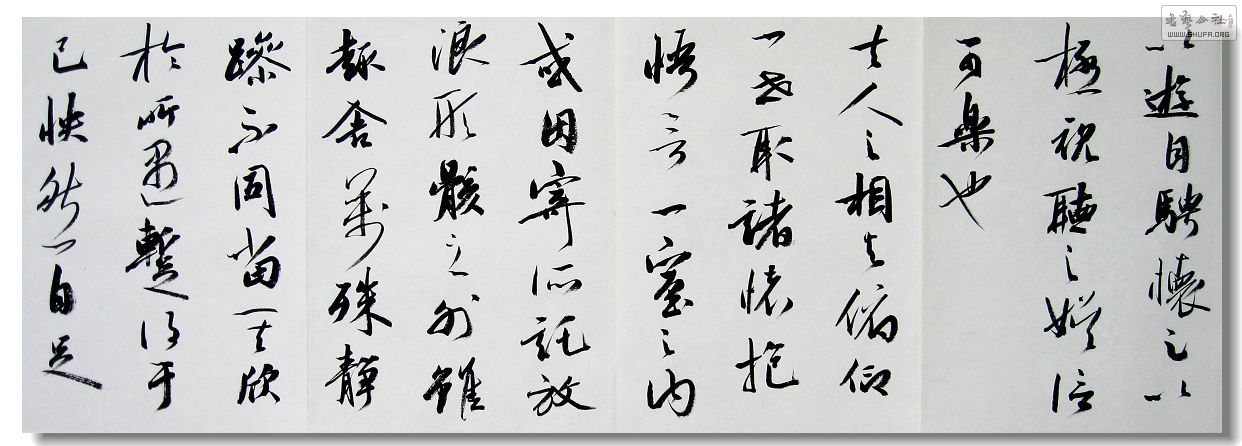 以遊目騁懷足以
極視聽之娛信
可樂也
夫人之相與俯仰
一世取諸懷抱
悟言一室之内
或因寄所託放
浪形骸之外雖
趣舍萬殊靜
躁不同當其欣
於所遇暫得于
己怏然自足
书艺公社
WWW.SHUFA.ORG